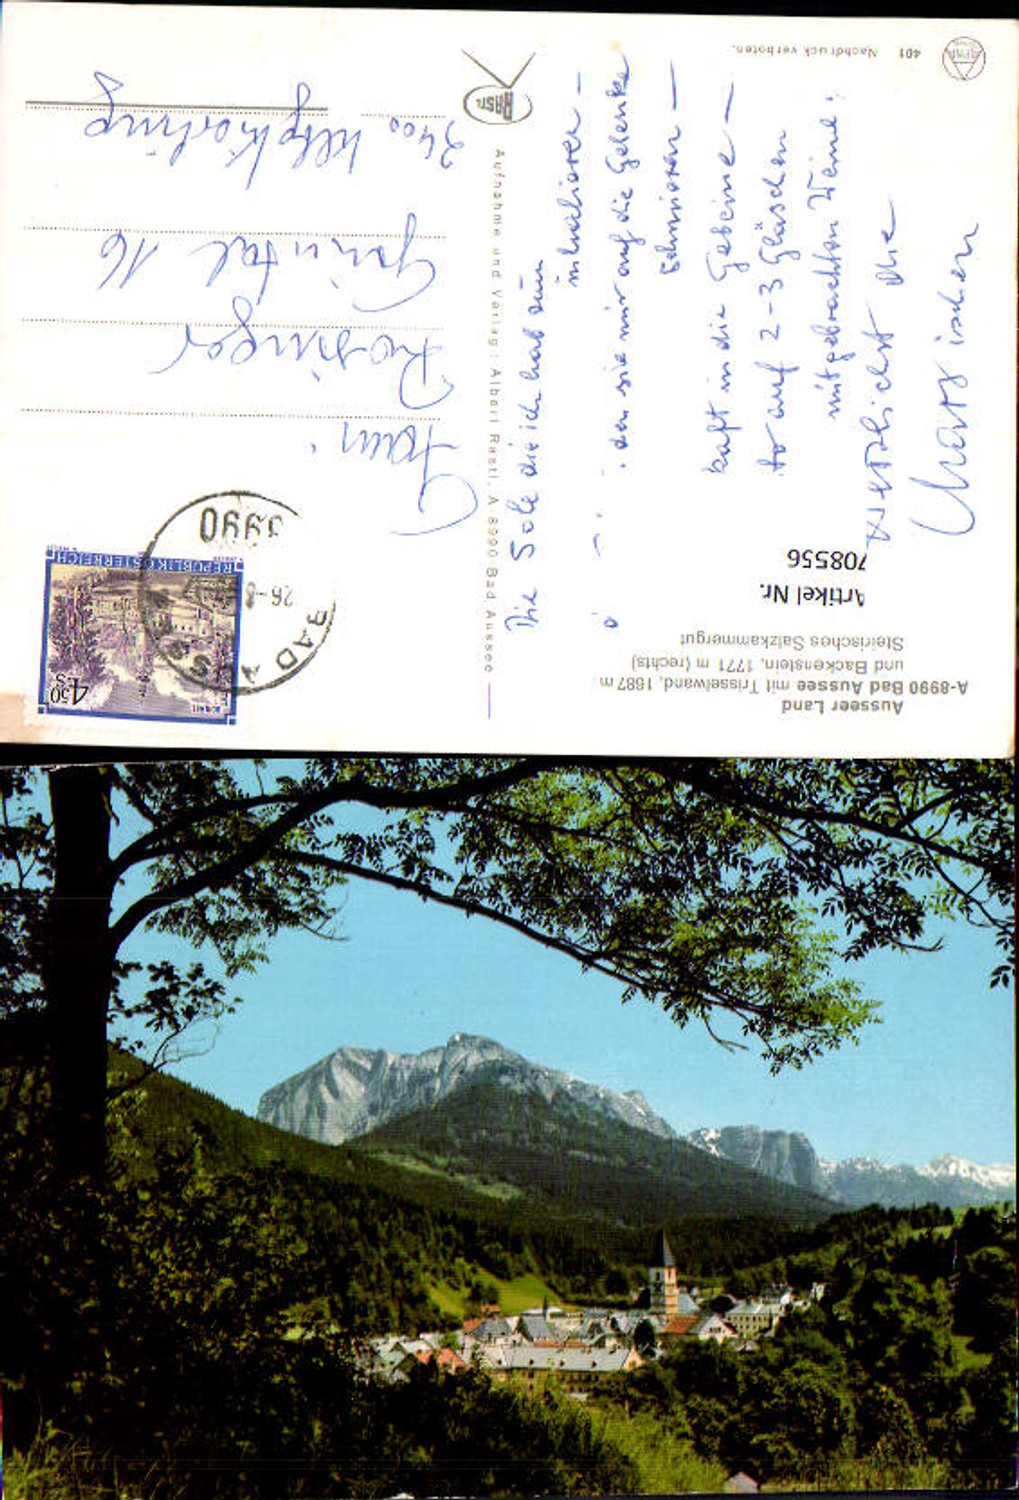 Ausseer Land
A-8990 Bad Aussee mit Trisselwand, 1687 m
und Backenstein, 1771 m (rechts)
Steirisches Salzkammergut
Artikel Nr.
708556
Die Sole die ich hab zum
inhalieren -
den sie mir auf die Gelenke
schmieren -
kaft in die Gebeine -
auf 2-3 Gläschen
mitgebrachten Weine!
herzlichst die
Aufnahme und Verlag: Albert Rastl, A 8990 Bad Aussee
RASTL
401 Nachdruck verboten.
REPUBLIK ÖSTERREICH
4.50 S
BAD AUSSEE
26.-8
8990
16
3400